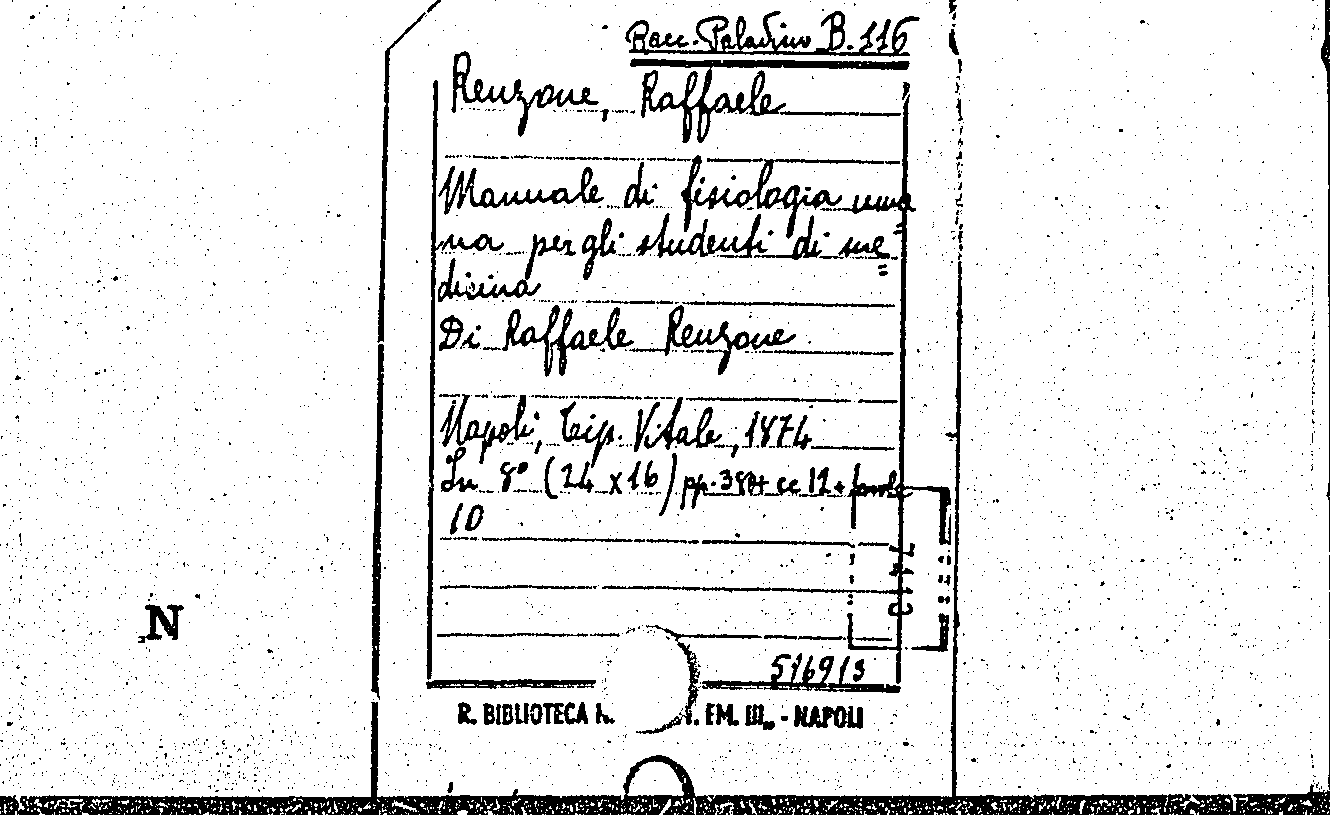 Racc. Paladino B. 116
Renzone, Raffaele
Manuale di fisiologia uma=
na per gli studenti di me=
dicina
Di Raffaele Renzone
Napoli, Tip. Vitale, 1874
In 8° (24 x 16) pp. cc 12 + tavole
10
N
516913
R. BIBLIOTECA N. T. EM. III„ - NAPOLI